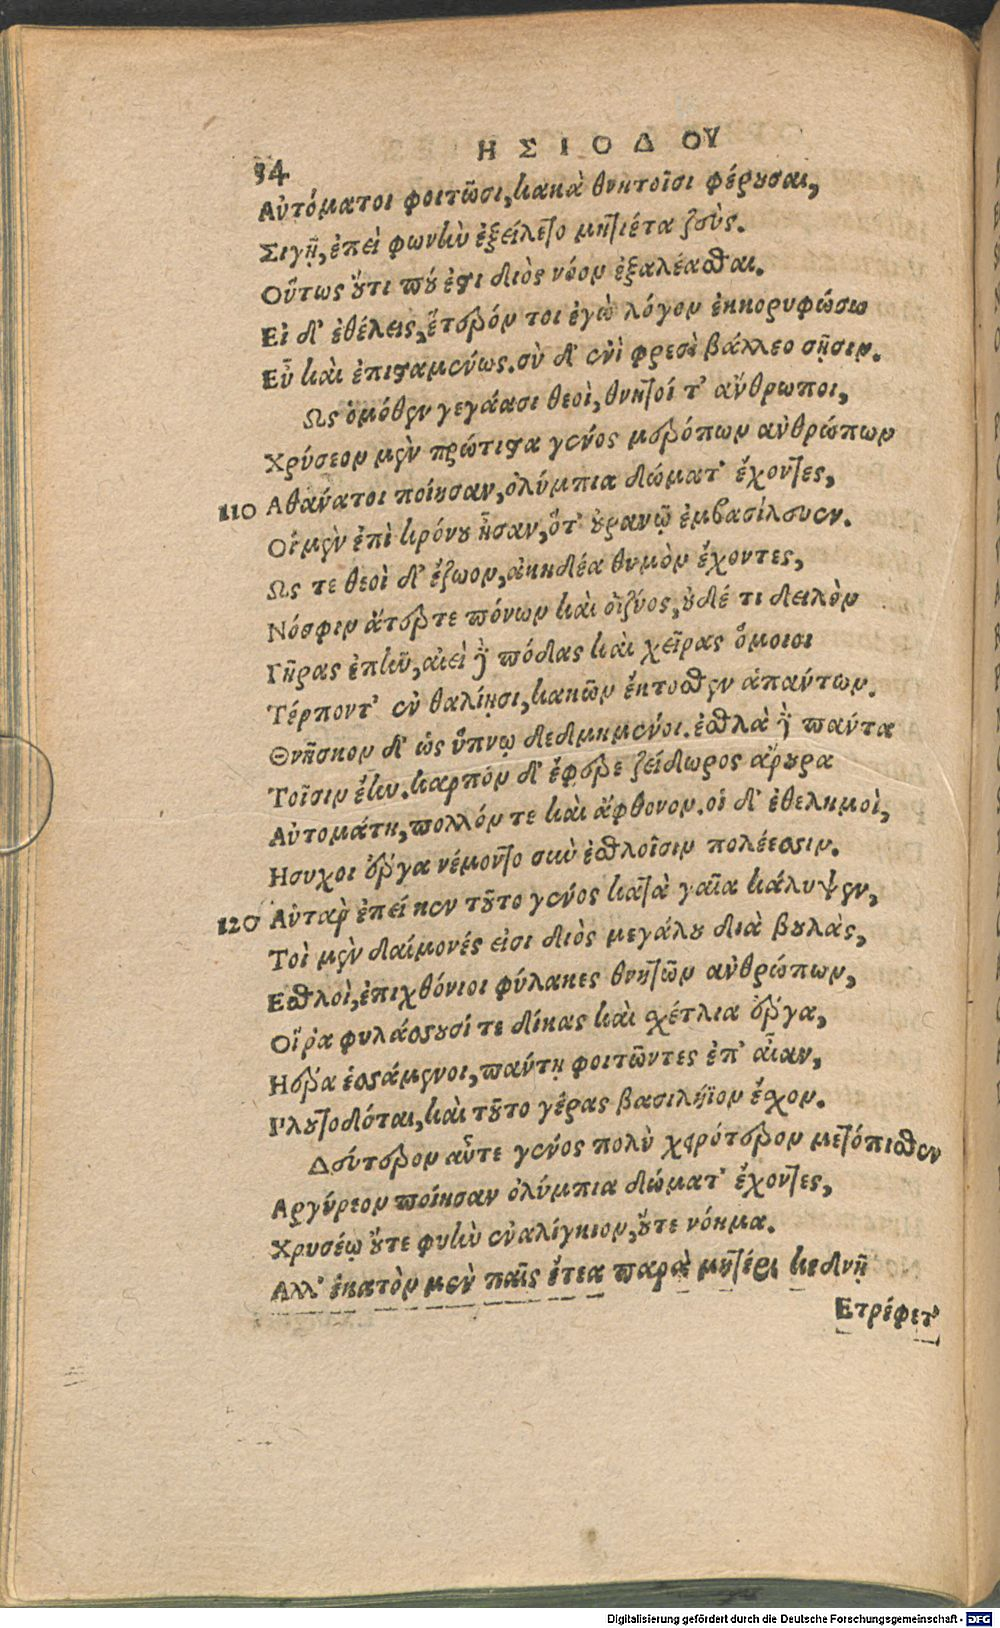 ΗΣΙΟΔΟΥ
34
Αὐτόματοι φοιτῶσι, κακὰ θνητοῖσι φέρουσαι,
Σιγῇ, ἐπεὶ φωνὴν ἐξείλετο μητιέτα ζεύς.
Οὕτως οὔτι πού ἐστι διὸς νόον ἐξαλέασθαι.
Εἰ δ' ἐθέλεις, ἕτερόν τοι ἐγὼ λόγον ἐκκορυφώσω
Εὖ καὶ ἐπισταμένως. σὺ δ' ἐνὶ φρεσὶ βάλλεο σῇσιν.
Ως ὁμόθεν γεγάασι θεοὶ, θνητοί τ' ἄνθρωποι,
Χρύσεον μὲν πρώτιστα γένος μερόπων ἀνθρώπων
110 Αθάνατοι ποίησαν, ὀλύμπια δώματ' ἔχοντες,
Οἱ μὲν ἐπὶ κρόνου ἦσαν, ὅτ' οὐρανῷ ἐμβασίλευεν.
Ως τε θεοὶ δ' ἔζωον, ἀκηδέα θυμὸν ἔχοντες,
Νόσφιν ἄτερτε πόνων καὶ ὀϊζύος, οὐδέ τι δειλὸν
Γῆρας ἐπῆν, αἰεὶ δὲ πόδας καὶ χεῖρας ὅμοιοι
Τέρποντ' ἐν θαλίῃσι, κακῶν ἔκτοσθεν ἁπάντων.
Θνῆσκον δ' ὡς ὕπνῳ δεδμημένοι. ἐσθλὰ δὲ πάντα
Τοῖσιν ἔην. καρπὸν δ' ἔφερε ζείδωρος ἄρουρα
Αὐτομάτη, πολλόν τε καὶ ἄφθονον. οἱ δ' ἐθελημοὶ,
Ησυχοι ἔργα νέμοντο σὺν ἐσθλοῖσιν πολέεσσιν.
120 Αὐτὰρ ἐπεί κεν τοῦτο γένος κατὰ γαῖα κάλυψεν,
Τοὶ μὲν δαίμονές εἰσι διὸς μεγάλου διὰ βουλὰς,
Εσθλοὶ, ἐπιχθόνιοι φύλακες θνητῶν ἀνθρώπων,
Οἵ ῥα φυλάσσουσί τε δίκας καὶ σχέτλια ἔργα,
Ηέρα ἑσσάμενοι, πάντη φοιτῶντες ἐπ' αἶαν,
Πλουτοδόται, καὶ τοῦτο γέρας βασιλήϊον ἔσχον.
Δεύτερον αὖτε γένος πολὺ χειρότερον μετόπισθεν
Αργύρεον ποίησαν ὀλύμπια δώματ' ἔχοντες,
Χρυσέῳ οὔτε φυὴν ἐναλίγκιον, οὔτε νόημα.
Αλλ' ἑκατὸν μὲν παῖς ἔτεα παρὰ μητέρι κεδνῇ
Ετρέφετ'
Digitalisierung gefördert durch die Deutsche Forschungsgemeinschaft - DFG